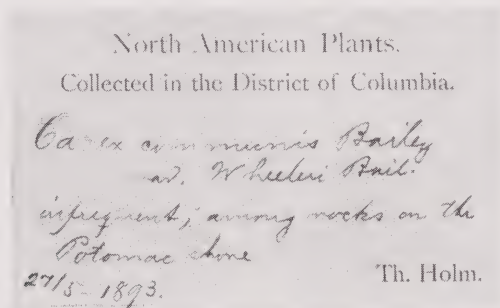 North American Plants.
Collected in the District of Columbia.
Carex communis Bailey
var. Wheeleri Bail.
infrequent; among rocks on the
Potomac shore
27/5 - 1893.
Th. Holm.